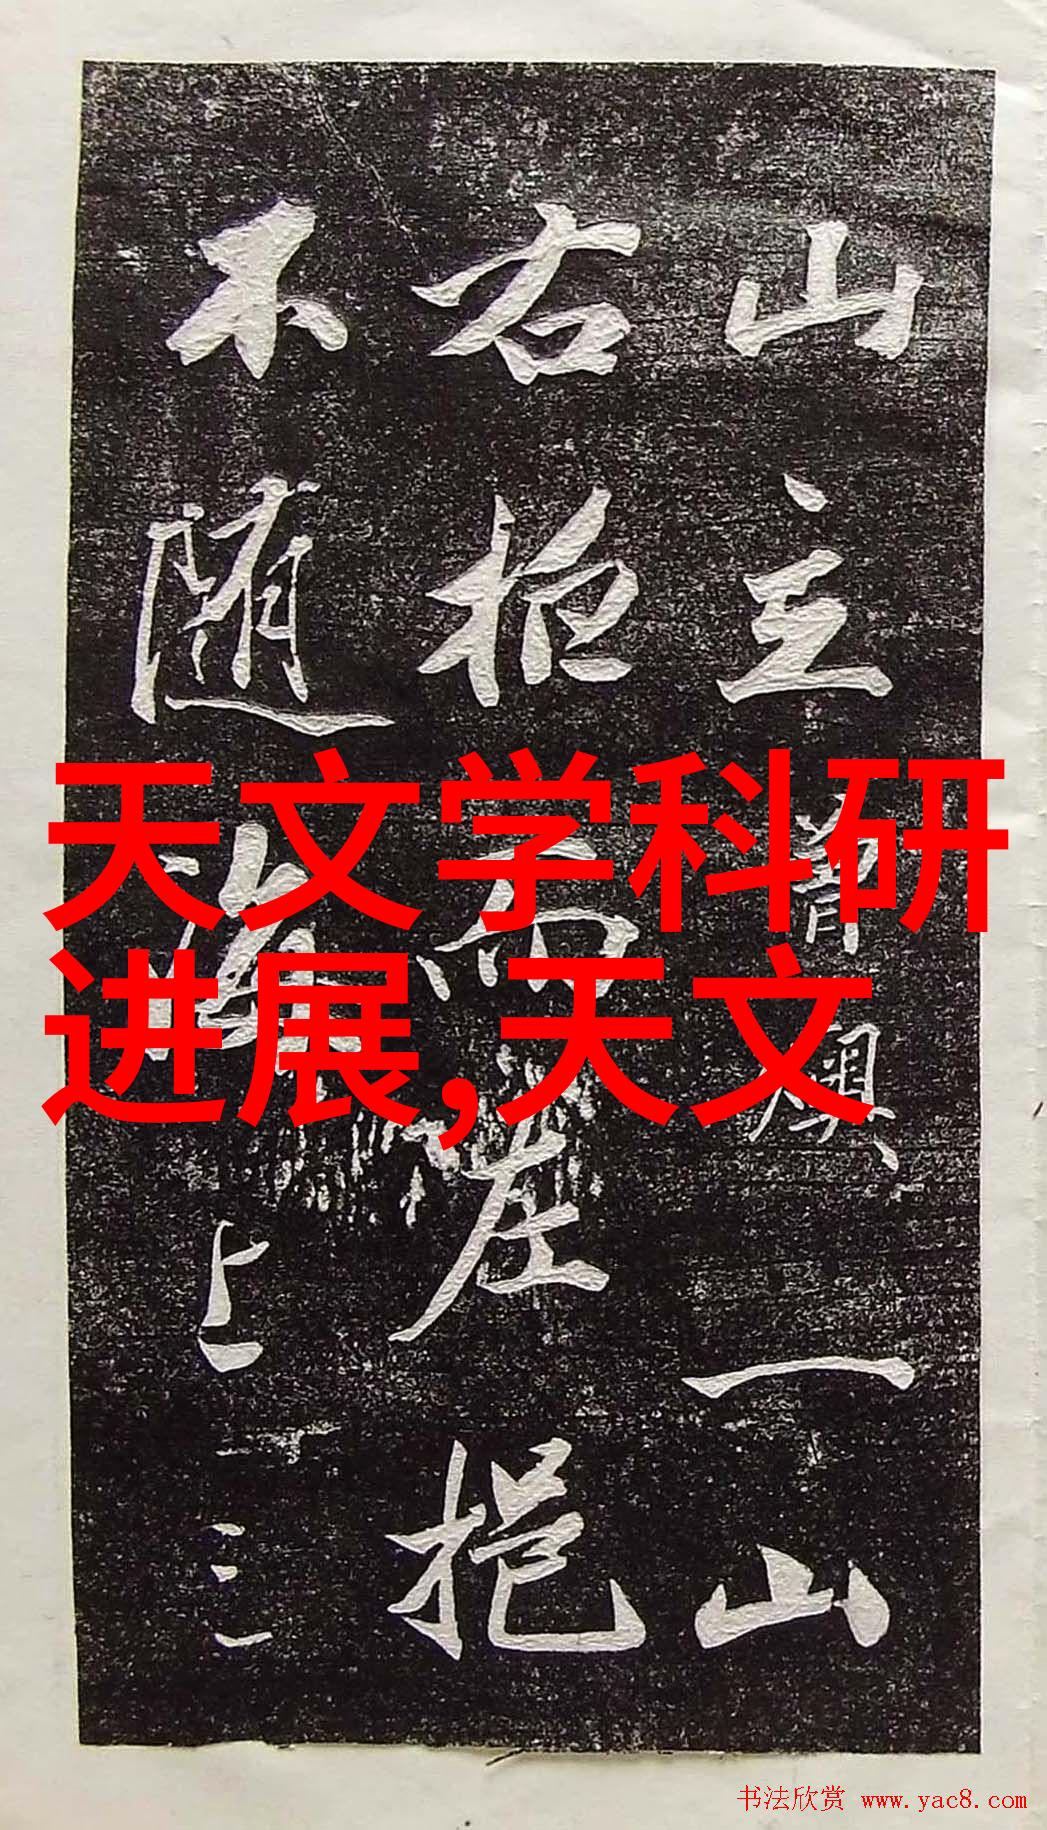 山主 一山
右 而左挹
不随海上三
天文学科研
进展,天文
书法欣赏 www.yac8.com